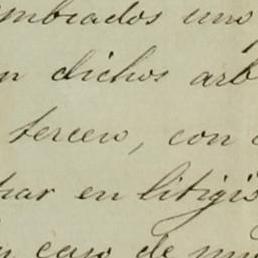 mbrados uno
n dichos arb
tercero, con
har en litigi
n caso de mu